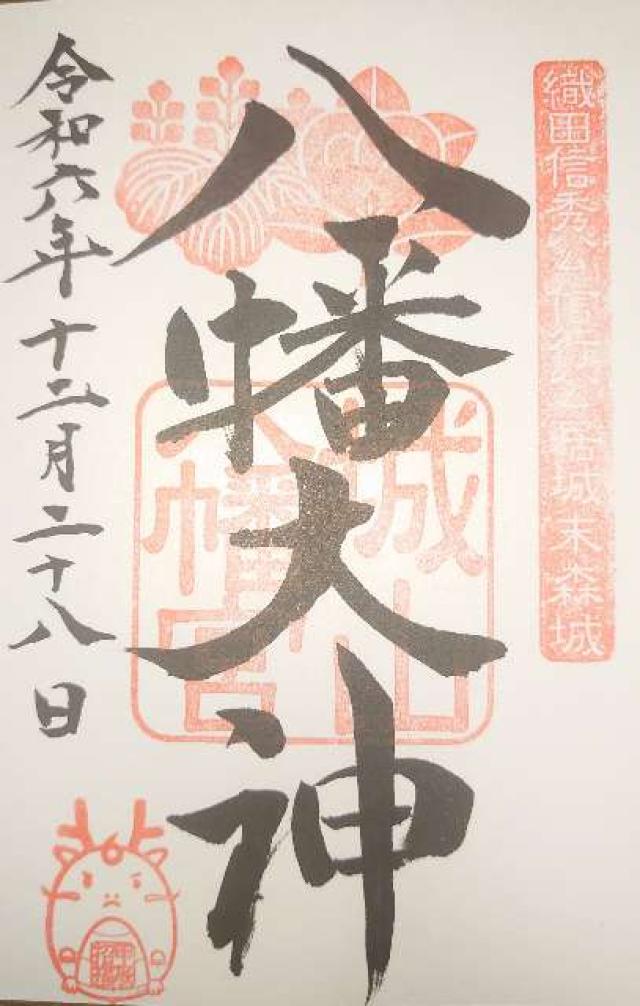 織田信秀公信行公居城末森城
八幡大神
城山八幡宮
令和六年十二月二十八日